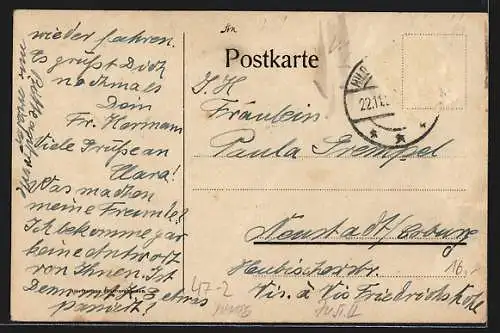 wieder fahren.
Es grüßt Dich
nochmals
Dein
Fr. Hermann
Viele Grüße an
Clara!
Was machen
meine Freunde?
Ich bekomme gar
keine Antwort
von Ihnen. Ist
Demnach H. etwas
passiert?
Bitte
Postkarte
22.11
Fräulein
Paula Grempel
Neustadt/Coburg
Heubischerstr.
Vis. à Vis Friedrichs
47-2
16,-